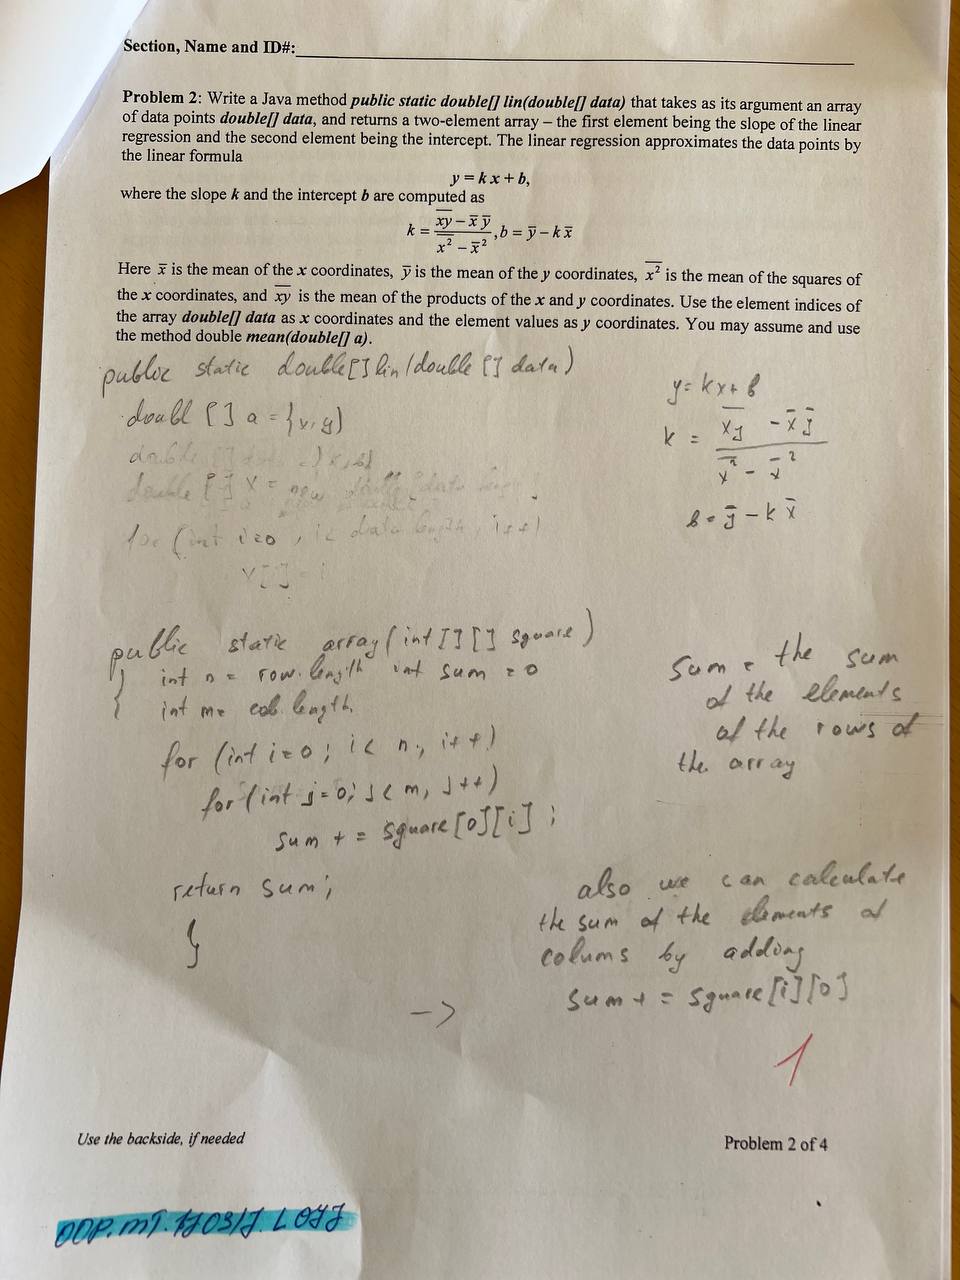 Section, Name and ID#:
Problem 2: Write a Java method public static double[] lin(double[] data) that takes as its argument an array
of data points double[] data, and returns a two-element array – the first element being the slope of the linear
regression and the second element being the intercept. The linear regression approximates the data points by
the linear formula
y = k x + b,
where the slope k and the intercept b are computed as
k = (x̅y̅ − x̄ ȳ) / (x̅²̅ − x̄²), b = ȳ − k x̄
Here x̄ is the mean of the x coordinates, ȳ is the mean of the y coordinates, x̅²̅ is the mean of the squares of
the x coordinates, and x̅y̅ is the mean of the products of the x and y coordinates. Use the element indices of
the array double[] data as x coordinates and the element values as y coordinates. You may assume and use
the method double mean(double[] a).
public static double[] lin(double [] data)
doubl [] a = {x, y)
double [] x = new
for (int i=0, i< data length, i++)
y = kx + b
k = (x̅y̅ - x̄ ȳ) / (x̅²̅ - x̄²)
b = ȳ - k x̄
public static array(int [][] square)
{ int n = row. length int sum = 0
int m = col. length
for (int i=0; i< n; i++)
for (int j=0; j< m, j++)
sum += square[0][i];
return sum;
}
sum = the sum
of the elements
of the rows of
the array
also we can calculate
the sum of the elements of
colums by adding
sum += square[i][0]
->
1
Use the backside, if needed
Problem 2 of 4